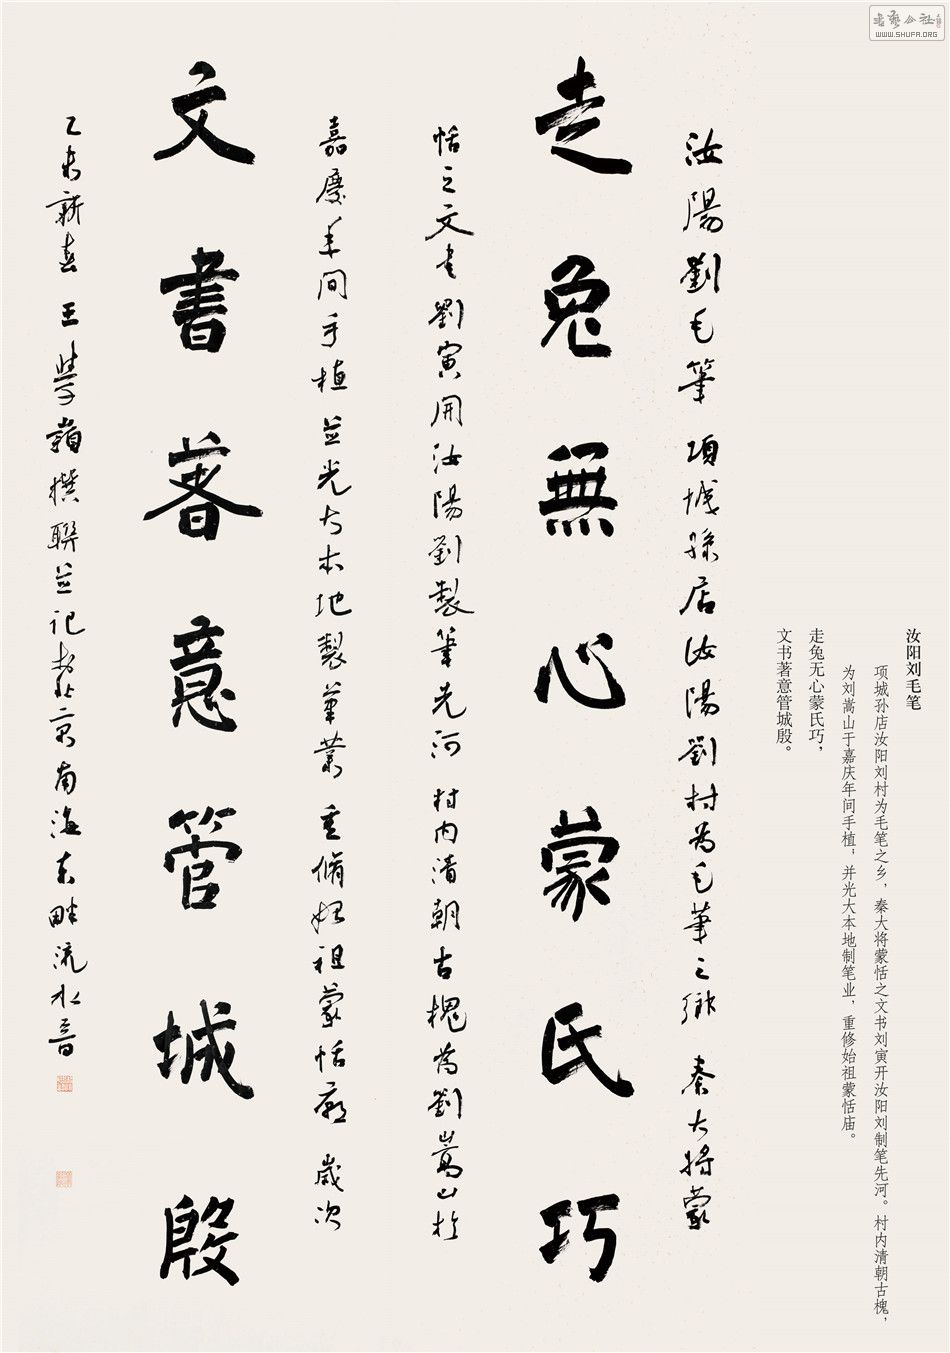 书艺公社
WWW.SHUFA.ORG
汝阳刘毛笔
项城孙店汝阳刘村为毛笔之乡，秦大将蒙恬之文书刘寅开汝阳刘制笔先河。村内清朝古槐，
为刘嵩山于嘉庆年间手植，并光大本地制笔业，重修始祖蒙恬庙。
走兔无心蒙氏巧，
文书著意管城殷。
汝陽劉毛筆 項城孫店汝陽劉村為毛筆之鄉 秦大將蒙
走兔無心蒙氏巧
恬之文書劉寅開汝陽劉製筆先河 村內清朝古槐為劉嵩山於
嘉慶年間手植並光大本地製筆業 重脩始祖蒙恬廟 歲次
文書著意管城殷
乙未新春 王學嶺撰聯並記於北京南海东畔流水音